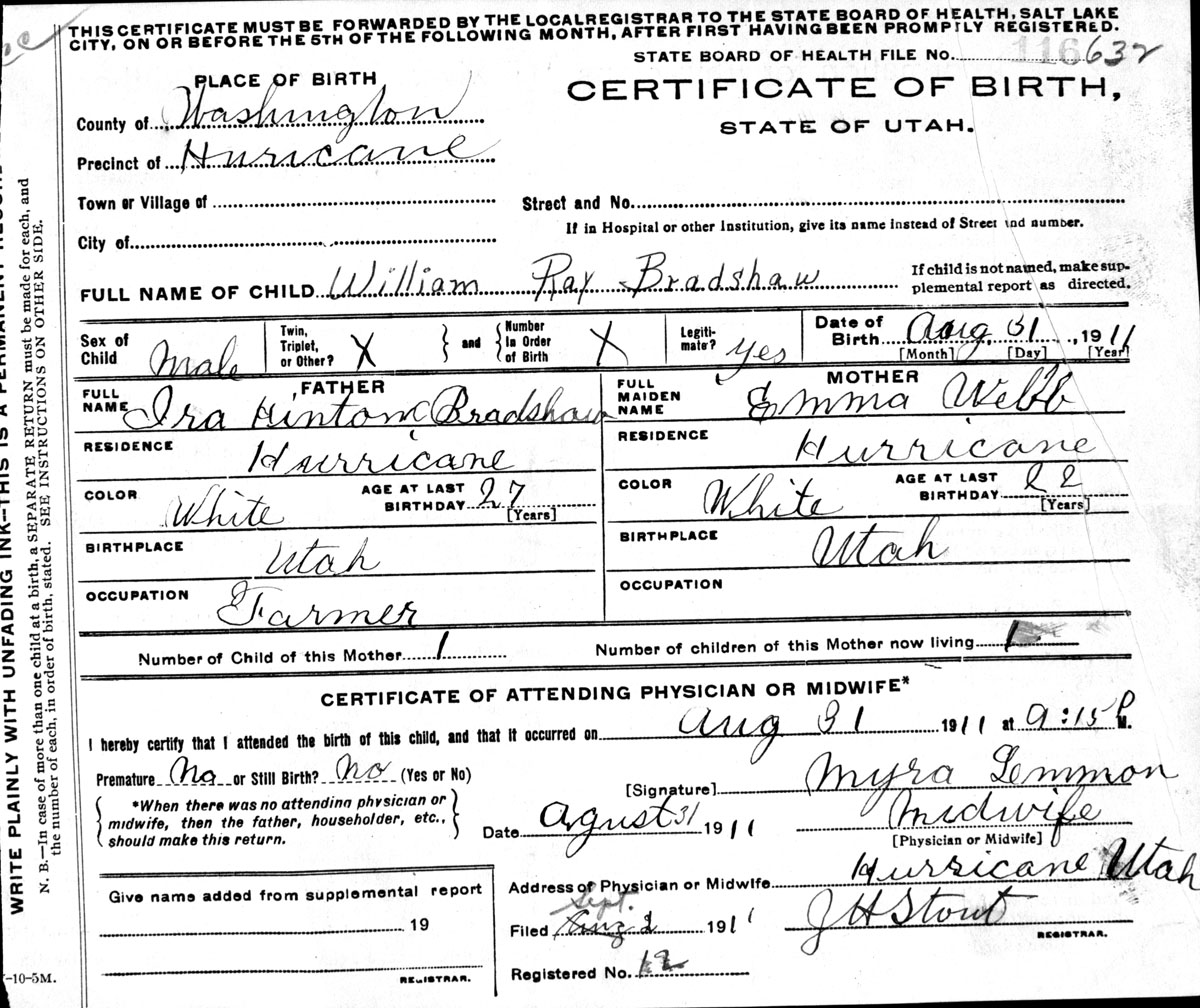 THIS CERTIFICATE MUST BE FORWARDED BY THE LOCAL REGISTRAR TO THE STATE BOARD OF HEALTH, SALT LAKE
CITY, ON OR BEFORE THE 5TH OF THE FOLLOWING MONTH, AFTER FIRST HAVING BEEN PROMPTLY REGISTERED.
STATE BOARD OF HEALTH FILE No. 116632
PLACE OF BIRTH
CERTIFICATE OF BIRTH,
STATE OF UTAH.
County of Washington
Precinct of Huricane
Town or Village of
Street and No.
If in Hospital or other Institution, give its name instead of Street and number.
City of
FULL NAME OF CHILD William Ray Bradshaw
If child is not named, make sup-
plemental report as directed.
Sex of Child Male
Twin, Triplet, or Other? X
and
Number In Order of Birth X
Legiti-mate? yes
Date of Birth Aug 31, 1911
[Month] [Day] [Year]
FATHER
FULL NAME Ira Hinton Bradshaw
MOTHER
FULL MAIDEN NAME Emma Webb
RESIDENCE Hurricane
RESIDENCE Hurricane
COLOR White AGE AT LAST BIRTHDAY 27 [Years]
COLOR White AGE AT LAST BIRTHDAY 22 [Years]
BIRTHPLACE Utah
BIRTHPLACE Utah
OCCUPATION Farmer
OCCUPATION
Number of Child of this Mother 1
Number of children of this Mother now living 1
CERTIFICATE OF ATTENDING PHYSICIAN OR MIDWIFE*
I hereby certify that I attended the birth of this child, and that it occurred on Aug 31 1911 at 9:15 P M.
Premature No or Still Birth? No (Yes or No)
*When there was no attending physician or
midwife, then the father, householder, etc.,
should make this return.
[Signature] Myra Lemmon
Date Agust 31 1911
Midwife
[Physician or Midwife]
Address of Physician or Midwife Hurricane Utah
Give name added from supplemental report
19
REGISTRAR.
Sept.
Filed Aug 2 1911
J H Stout
REGISTRAR.
Registered No. 12
WRITE PLAINLY WITH UNFADING INK—THIS IS A PERMANENT RECORD
N. B.—In case of more than one child at a birth, a SEPARATE RETURN must be made for each, and
the number of each, in order of birth, stated. SEE INSTRUCTIONS ON OTHER SIDE.
-10-5M.